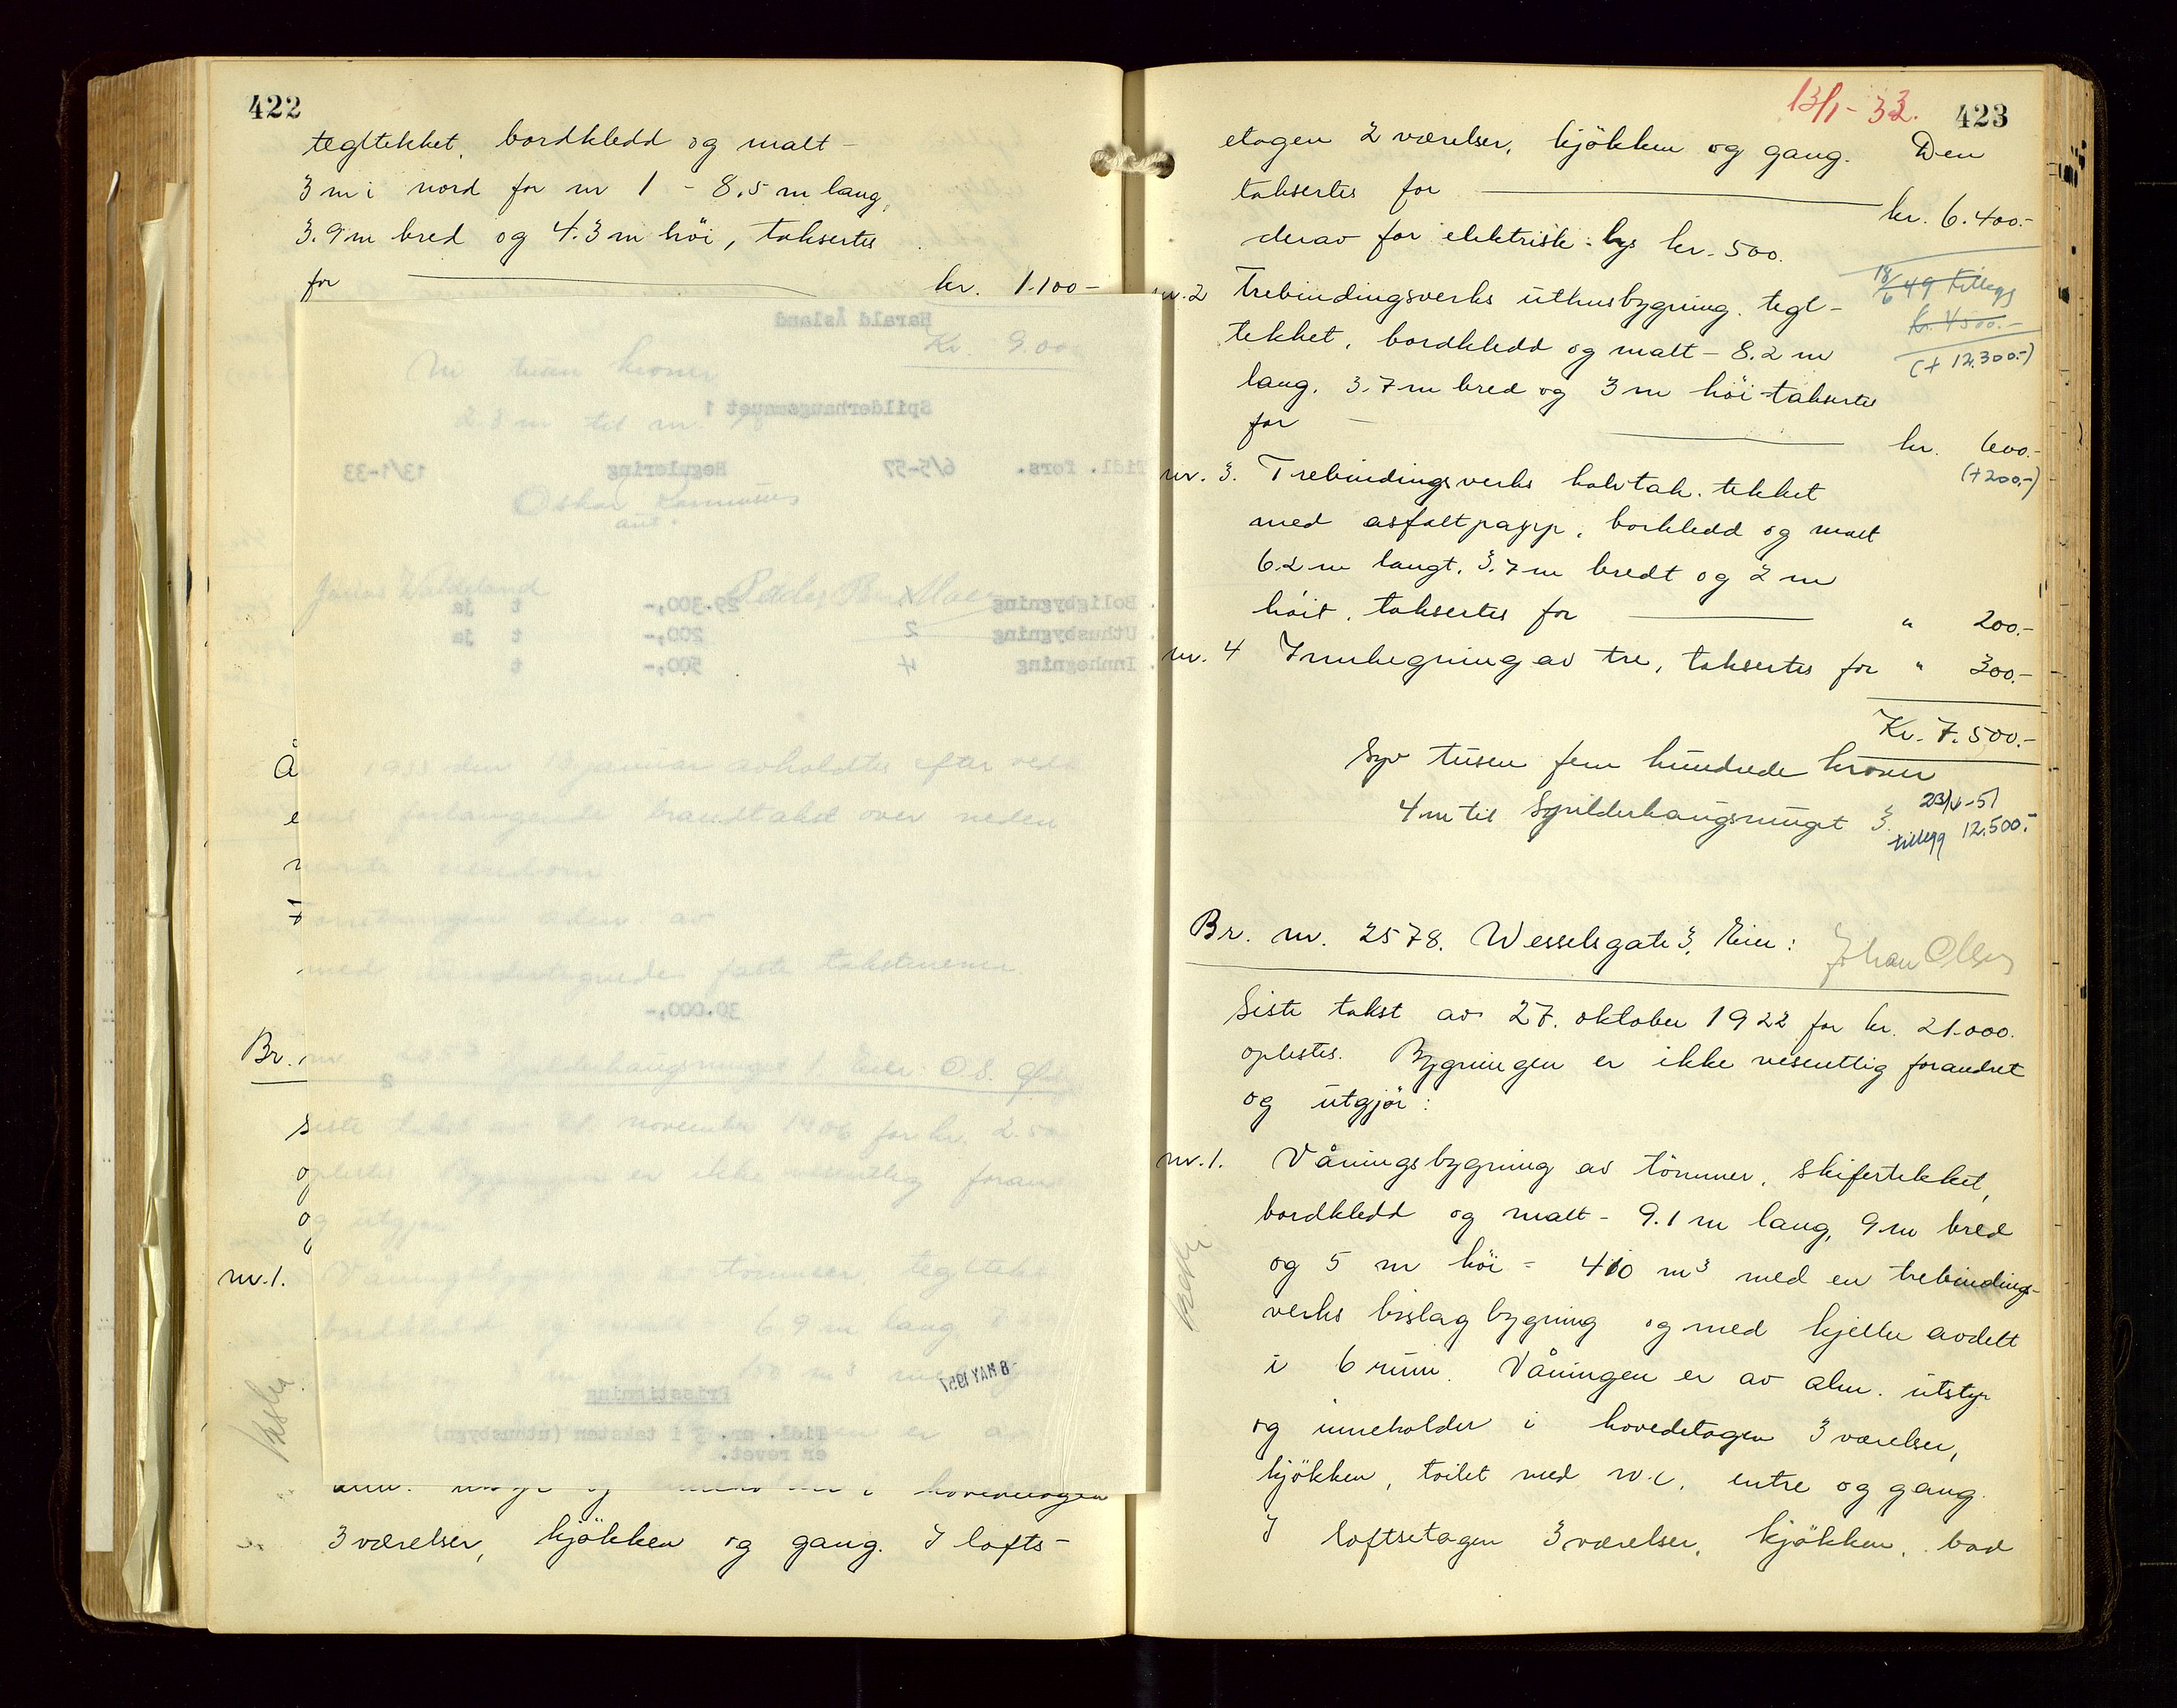 422
tegltekket, bordkledd og malt -
3 m i nord for nr 1 - 8.5 m lang,
3.9 m bred og 4.3 m höi, taksertes
for kr. 1.100 -
Harald Åsland
Kr 9.000
Ni tusen kroner
Spilderhaugsmuget 1
2.8 m til nr.
Tidl. fors. 6/5-57 Regulering 13/1-33
Oskar Rasmussen
Jonas Waldeland
. Boligbygning 1 29.300,- t ja
. Uthusbygning 2 200,- t ja
. Innhegning 4 500,- t
År 1933 den 13 januar avholdtes efter
forlangende brandtakst over neden
nevnte eiendom.
Forretningen av
med undertegnede faste takstmenn.
30.000,-
Br. nr. Spilderhaugsmuget 1 Eier: O. S.
2
Siste takst av november 1906 for kr.
oplestes. Bygningen er ikke vesentlig foran
og utgjör
nr. 1. Våningsbygning av tömmer, tegltek
bordkledd og malt 6.9 m lang
150 m³
-8 MAY 1957
Prisstigning
Tidl. nr. 3 i taksten (uthusbygn)
er revet.
alm. utstyr og inneholder i hovedetagen
3 værelser, kjökken og gang. I lofts-
13/1-33. 423
etagen 2 værelser, kjökken og gang. Den
taksertes for kr. 6.400.-
derav for elektrisk lys kr. 500.
18/6 49 Tillegg
Kr. 4500.-
(+ 12.300.-)
nr. 2 Trebindingsverks uthusbygning. tegl-
tekket, bordkledd og malt - 8.2 m
lang. 3.7 m bred og 3 m höi taksertes
for kr. 600.-
(+200.-)
nr. 3. Trebindingsverks halvtak. tekket
med asfaltpapp, borkledd og malt
6.2 m langt. 3.7 m bredt og 2 m
höit, taksertes for " 200.-
nr. 4 Innhegning av tre, taksertes for " 300.-
Kr. 7.500.-
Syv tusen fem hundrede kroner
4 m til Spilderhaugsmuget 3.
23/4-51
tillegg 12.500.-
Br. nr. 2578. Wesselsgate 3. Eier: Johan Olsen
Siste takst av 27. oktober 1922 for kr. 21.000.
oplestes. Bygningen er ikke vesentlig forandret
og utgjör:
nr. 1. Våningsbygning av tömmer, skifertekket,
bordkledd og malt - 9.1 m lang, 9 m bred
og 5 m höi = 410 m³ med en trebindings-
verks bislagbygning og med kjeller avdelt
i 6 rum. Våningen er av alm. utstyr
og inneholder i hovedetagen 3 værelser,
kjökken, toilet med w.c. entre og gang.
I loftsetagen 3 værelser, kjökken, bad